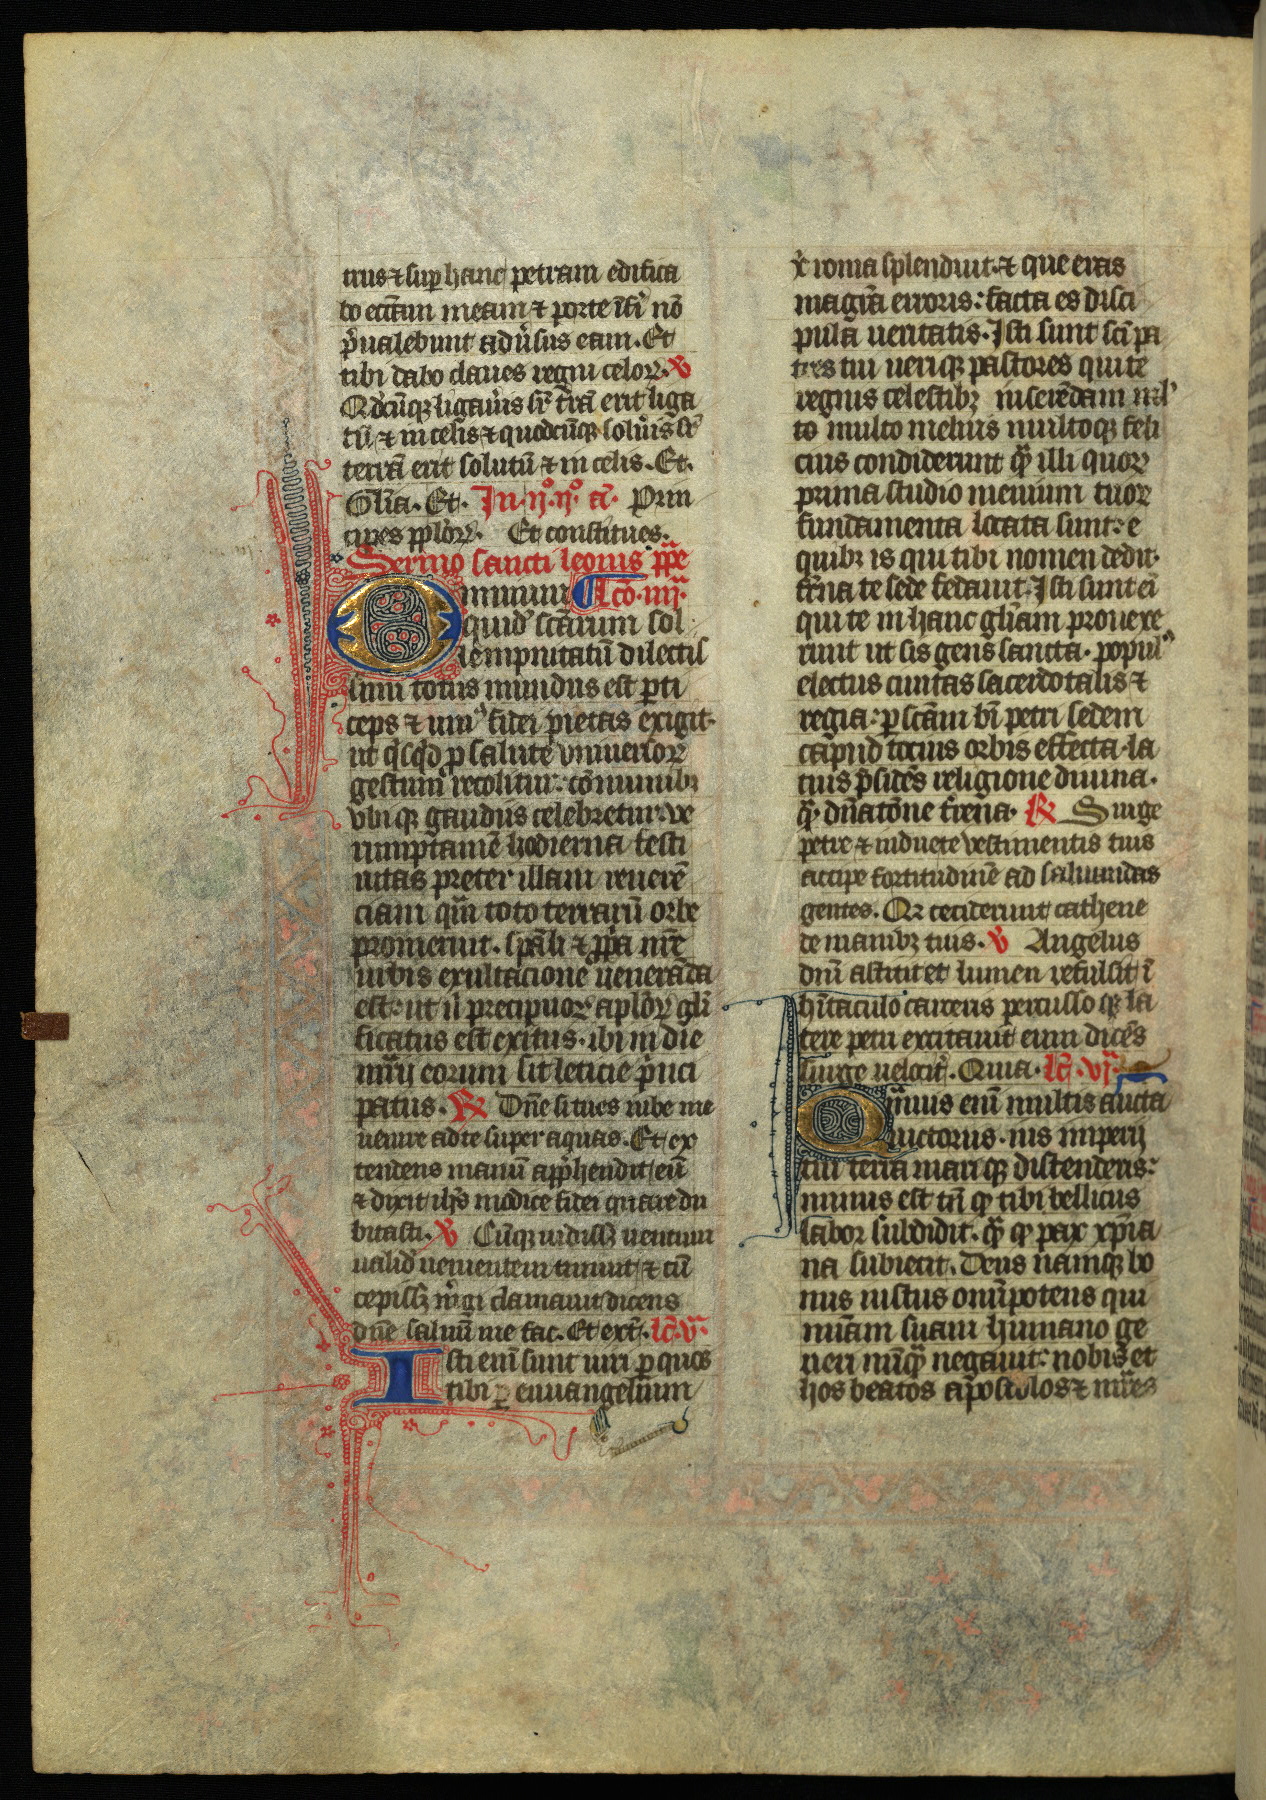 trus ⁊ sup hanc petram edifica
bo eccãm meam ⁊ porte ĩfi nõ
p̃ualebunt adũsus eam. Et
tibi dabo claues regni celoꝝ. ꝟ
Qdcũqꝫ ligauis sr̃ t̃rã erit liga
tũ ⁊ in celis ⁊ quodcũqꝫ soluis sr̃
terrã erit solutũ ⁊ in celis. Et.
Glĩa. Et. In .ij.º ñº añ. Prin
cipes pplõꝝ. Et constitues.
Sermo sancti leonis pp̃e
Omnium lc̃õ .iiij.
quid̾ scãrum sol
lempnitatũ dilectis
simi totus mundus est ꝑti
ceps ⁊ uniꝰ fidei pietas exigit.
ut qͥsqͥd ꝓ salute vniuersoꝝ
gestum recolitur: cõmunibꝫ
vbiqꝫ gaudiis celebretur. ve
rumptamẽ hodierna festi
uitas preter illam reuerẽ
ciam quã toto terrarũ orbe
promeruit. spãli ⁊ pp̃a nr̃e
urbis exultacione ueneráda
est: ut ĩ precipuoꝝ aplõꝝ glĩ
ficatus est exitus. ibi in die
mr̃ij eorum sit leticie p̃nci
patus. ℟ Dñe si tu es iube me
uenire ad te super aquas. Et ex
tendens manũ app̃hendit eũ
⁊ dixit ihs̃ modice fidei quare du
bitasti. ꝟ Cũqꝫ uidissꝫ uentum
ualid̾ uenientem timuit ⁊ cũ
cepissꝫ m̃gi clamauit dicens
dñe saluũ me fac. Et ext̃. lc̃. v.ª
Isti enĩ sunt uiri ꝑ quos
tibi ꝑ euuangelium
x̃ roma splenduit. ⁊ que eras
magr̃a erroris: facta es disci
pula ueritatis. Isti sunt scĩ pa
tres tui ueriqꝫ pastores qui te
regnis celestibꝫ inserẽdam
to multo melius multoqꝫ feli
cius condiderunt qͣ̃ illi quoꝝ
prima studio menium tuoꝝ
fundamenta locata sunt: e
quibꝫ is qui tibi nomen dedit.
fr̃na te sede fedauit. Isti sunt eĩ
qui te in hanc glĩam prouexe
runt ut sis gens sancta. populꝰ
electus ciuitas sacerdotalis ⁊
regia: ꝑ scãm bĩ petri sedem
capud tocius orbis effecta. la
cius p̃sidẽs religione diuina.
qͣ̃ dñatõne t̃rena. ℟ Surge
petre ⁊ induete vestimentis tuis
accipe fortitudinẽ ad saluandas
gentes. Qꝛ ceciderunt cathene
de manibꝫ tuis. ꝟ Angelus
dnĩ astitit et lumen refulsit ĩ
hĩtaculo carceris percussoqꝫ la
tere petri excitauit eum dicẽs
surge uelocit̃. Quia. lc̃. vi.ª
Quamuis enĩ multis aucta
uictoriis. ius imperij
tui terra mariqꝫ distenderis:
minus est tñ qͩ tibi bellicus
labor subdidit. qͣ̃ qͩ pax xp̃ia
na subiecit. Deus namqꝫ bo
nus iustus omĩpotens qui
mĩam suam humano ge
neri nũqͣ̃ negauit: nobis et
hos beatos apostolos ⁊ mr̃es